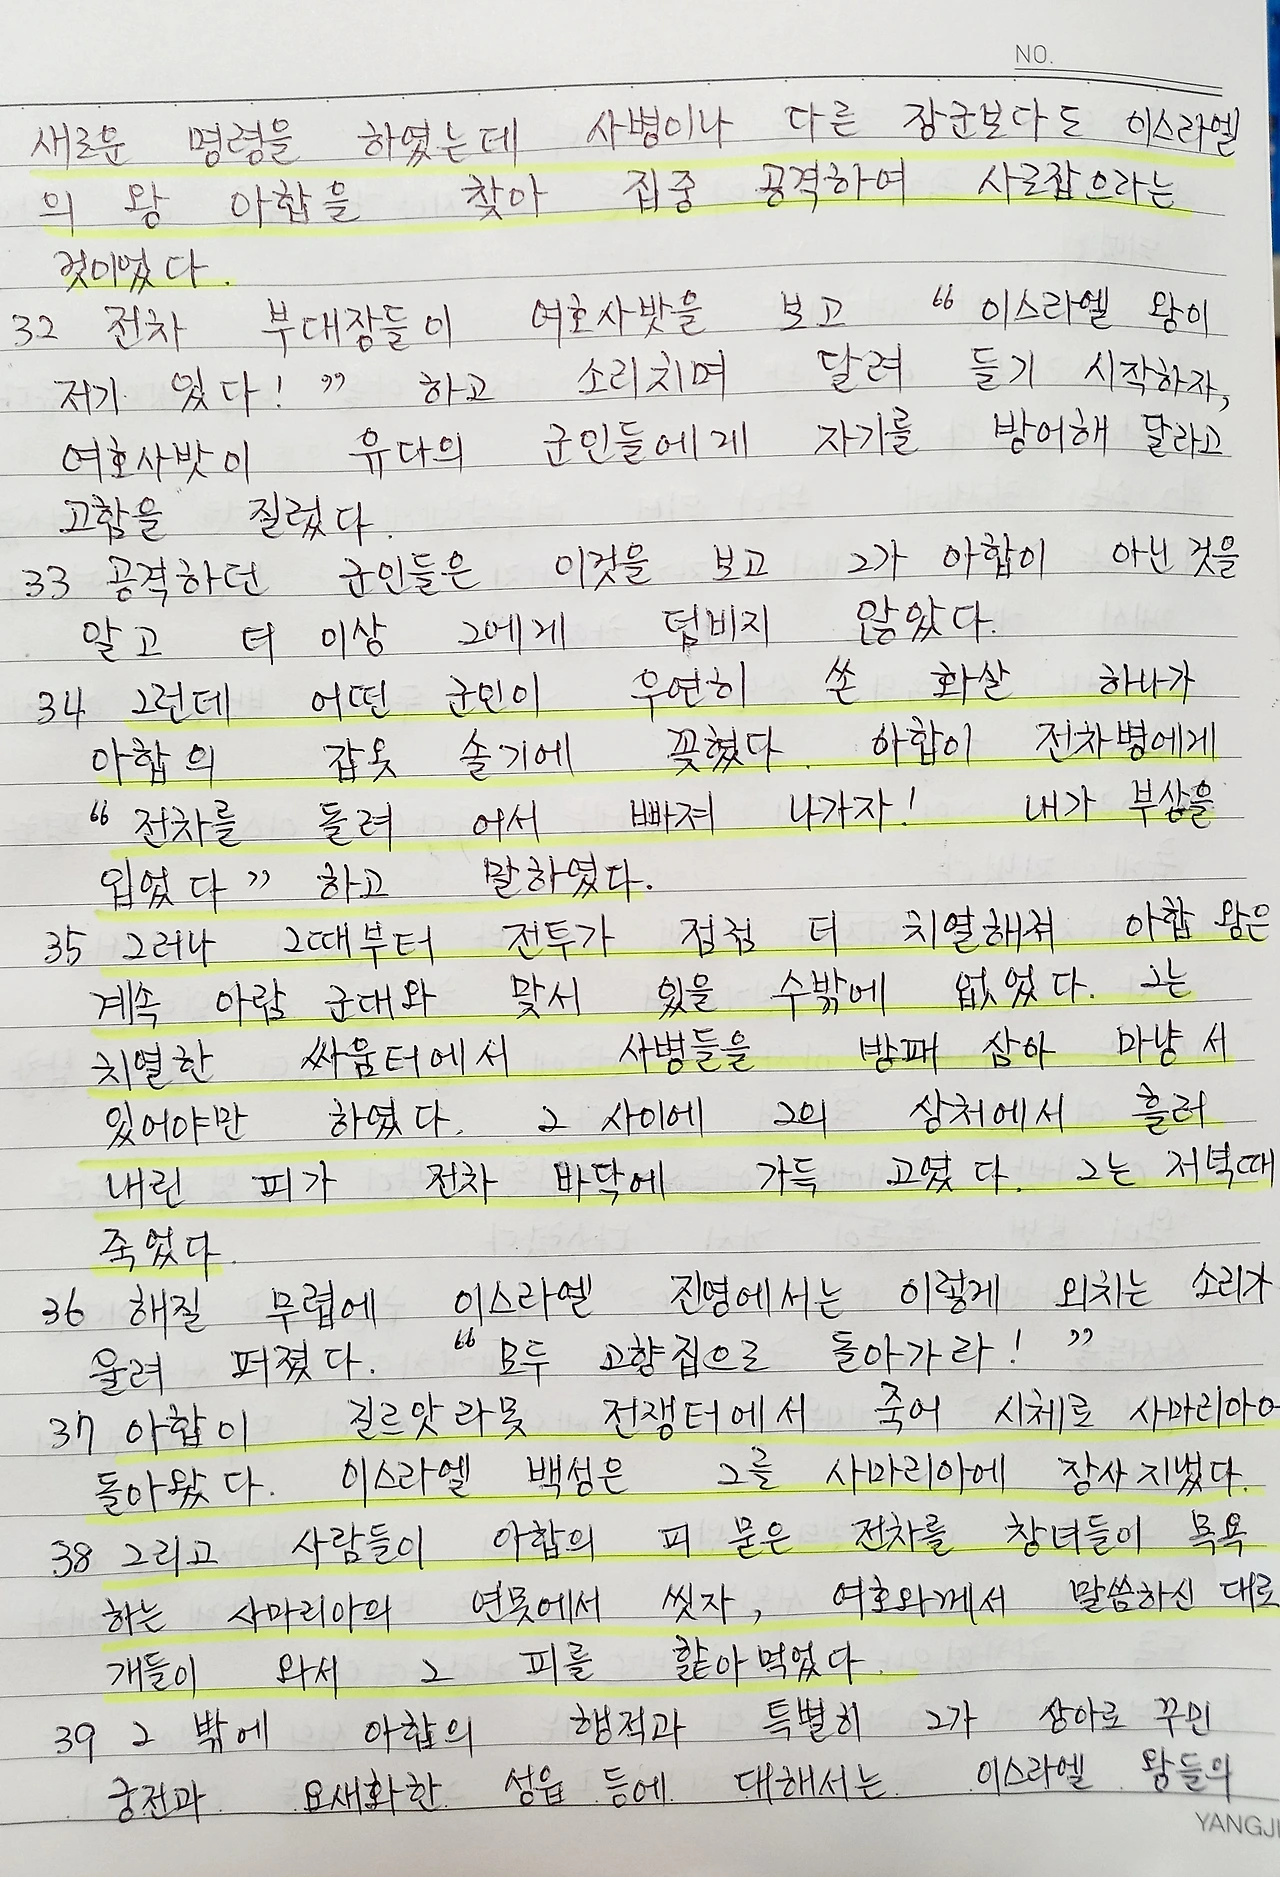 NO.
새로운 명령을 하였는데 사병이나 다른 장군보다도 이스라엘
의 왕 아합을 찾아 집중 공격하여 사로잡으라는
것이었다.
32 전차 부대장들이 여호사밧을 보고 “이스라엘 왕이
저기 있다!” 하고 소리치며 달려 들기 시작하자,
여호사밧이 유다의 군인들에게 자기를 방어해 달라고
고함을 질렀다.
33 공격하던 군인들은 이것을 보고 그가 아합이 아닌 것을
알고 더 이상 그에게 덤비지 않았다.
34 그런데 어떤 군인이 우연히 쏜 화살 하나가
아합의 갑옷 솔기에 꽂혔다. 아합이 전차병에게
“전차를 돌려 어서 빠져 나가자! 내가 부상을
입었다” 하고 말하였다.
35 그러나 그때부터 전투가 점점 더 치열해져 아합 왕은
계속 아람 군대와 맞서 있을 수밖에 없었다. 그는
치열한 싸움터에서 사병들을 방패 삼아 마냥 서
있어야만 하였다. 그 사이에 그의 상처에서 흘러
내린 피가 전차 바닥에 가득 고였다. 그는 저녁때
죽었다.
36 해질 무렵에 이스라엘 진영에서는 이렇게 외치는 소리가
울려 퍼졌다. “모두 고향집으로 돌아가라!”
37 아합이 길르앗라못 전쟁터에서 죽어 시체로 사마리아에
돌아왔다. 이스라엘 백성은 그를 사마리아에 장사지냈다.
38 그리고 사람들이 아합의 피 묻은 전차를 창녀들이 목욕
하는 사마리아의 연못에서 씻자, 여호와께서 말씀하신 대로
개들이 와서 그 피를 핥아먹었다.
39 그 밖에 아합의 행적과 특별히 그가 상아로 꾸민
궁전과 요새화한 성읍 등에 대해서는 이스라엘 왕들의
YANGJI